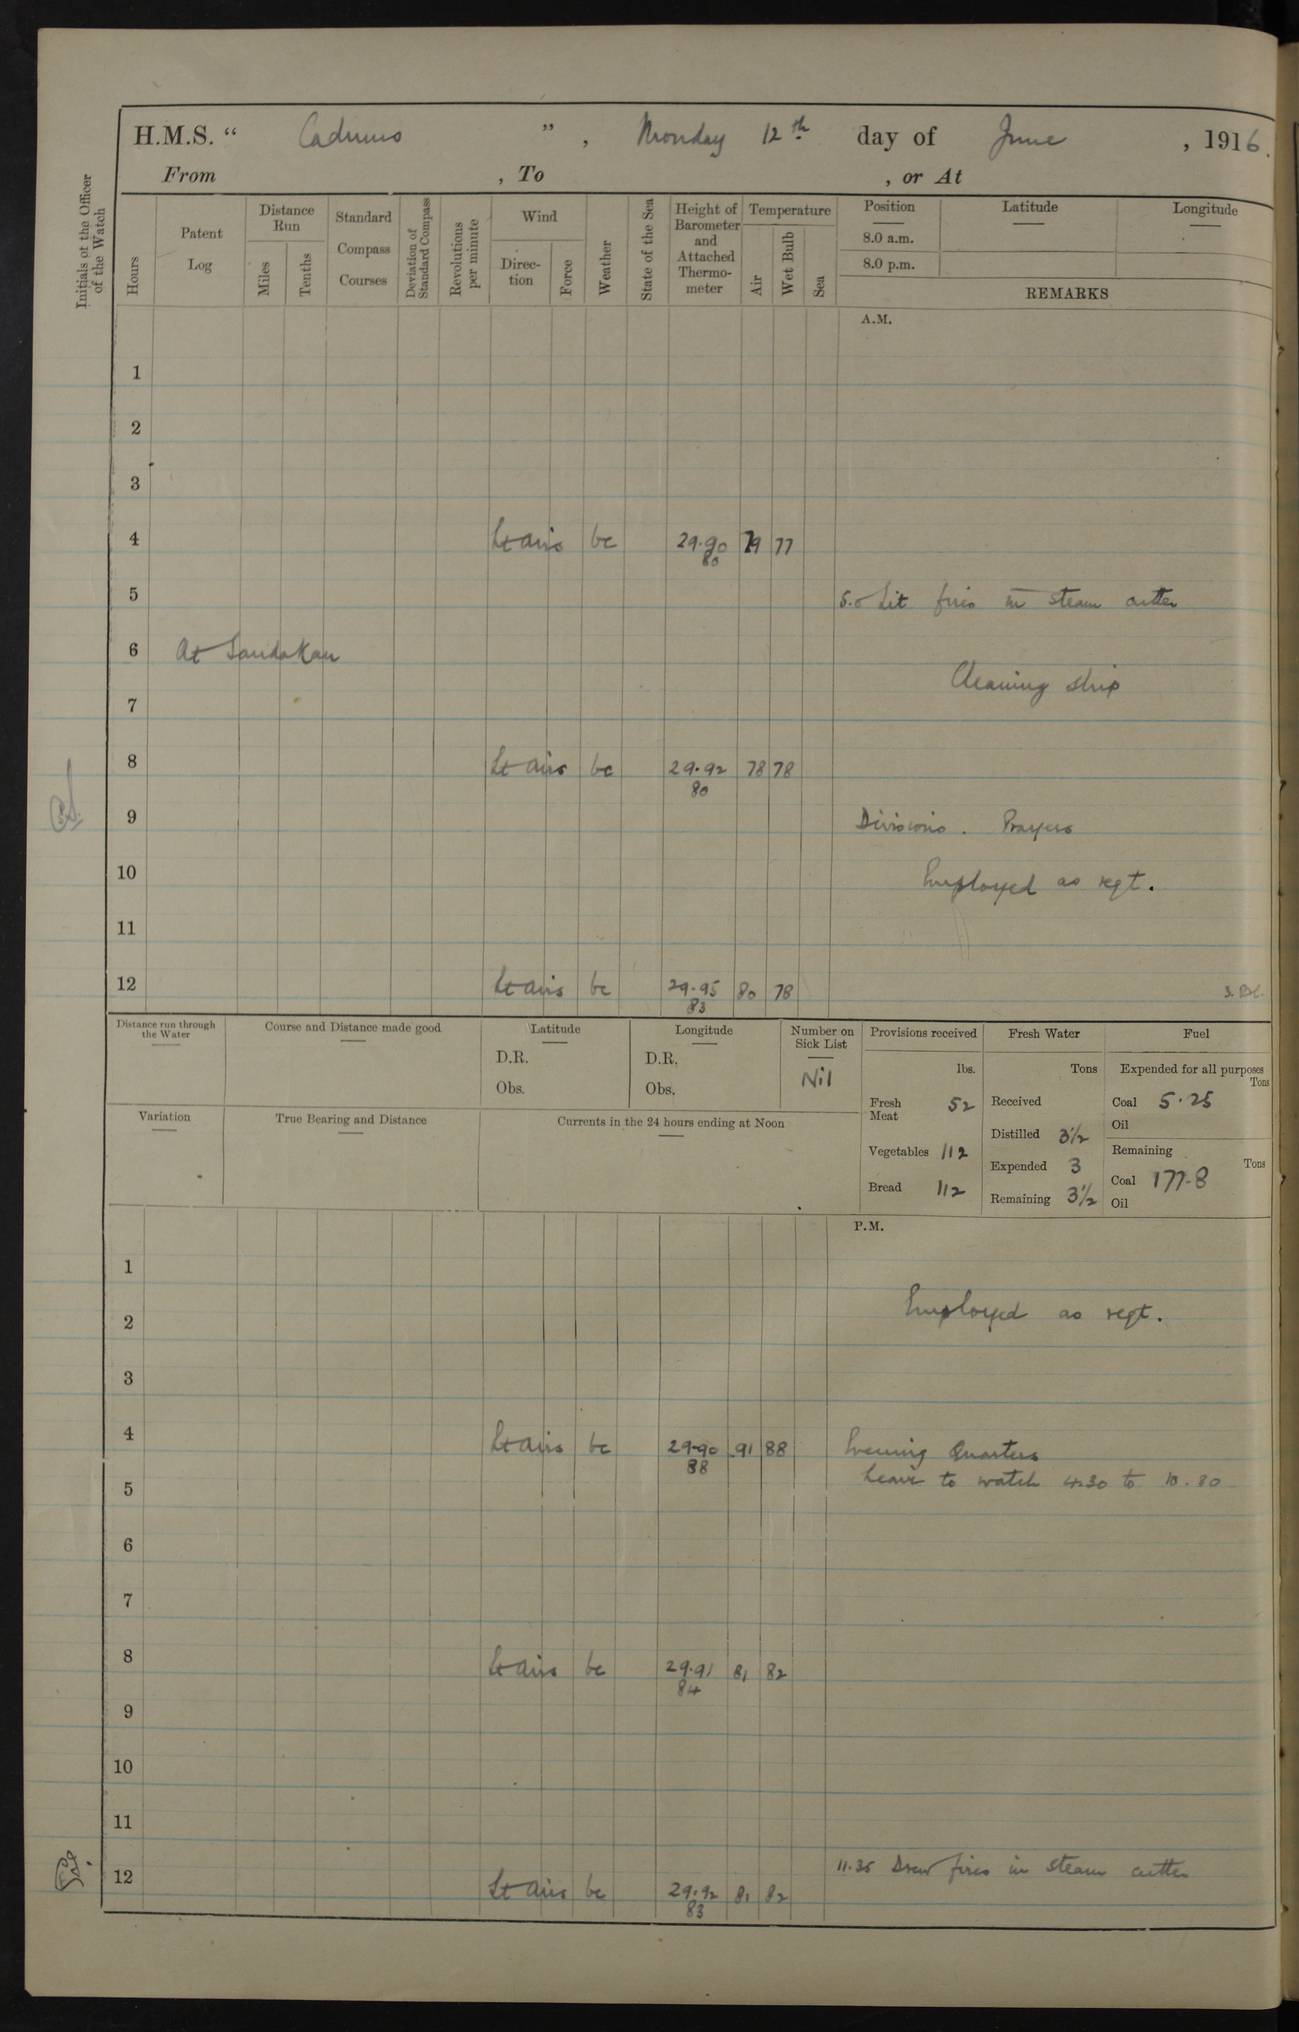 H.M.S. “ Cadmus ” , Monday 12th day of June , 1916.
From , To , or At
Initials of the Officer of the Watch
Hours
Patent Log
Distance Run
Miles
Tenths
Standard Compass Courses
Deviation of Standard Compass
Revolutions per minute
Wind
Direc-tion
Force
Weather
State of the Sea
Height of Barometer and Attached Thermo-meter
Temperature
Air
Wet Bulb
Sea
Position Latitude Longitude
8.0 a.m.
8.0 p.m.
REMARKS
A.M.
1
2
3
4 Lt airs bc 29.90 79 77
80
5 5.0 Lit fires in steam cutter
6 At Sandakan
Cleaning ship
7
8 Lt airs bc 29.92 78 78
80
9 Divisions. Prayers
10 Employed as reqt.
11
12 Lt airs bc 29.95 80 78
83
Distance run through the Water
Course and Distance made good
Latitude
D.R.
Obs.
Longitude
D.R.
Obs.
Number on Sick List
Nil
Variation
True Bearing and Distance
Currents in the 24 hours ending at Noon
Provisions received
lbs.
Fresh Meat 52
Vegetables 112
Bread 112
Fresh Water
Tons
Received
Distilled 3½
Expended 3
Remaining 3½
Fuel
Expended for all purposes
Tons
Coal 5.25
Oil
Remaining
Tons
Coal 177.8
Oil
P.M.
1
Employed as reqt.
2
3
4 Lt airs bc 29.90 91 88 Evening Quarters
88
Leave to watch 4.30 to 10.30
5
6
7
8 Lt airs bc 29.91 81 82
84
9
10
11
11.35 Drew fires in steam cutter
12 Lt airs bc 29.92 81 82
83